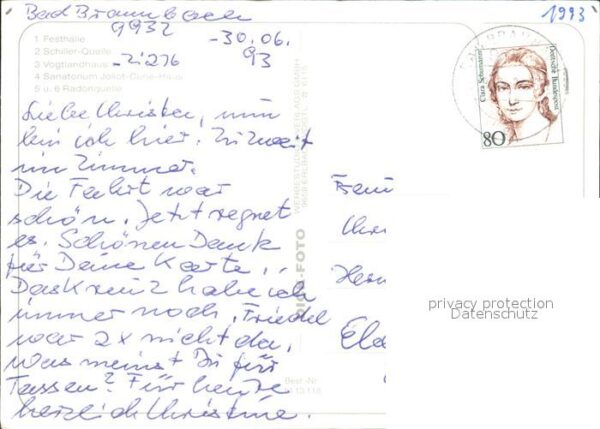 Bad Brambach
9932 -30.06.
-Zi 276 93
1993
1 Festhalle
2 Schiller-Quelle
3 Vogtlandhaus
4 Sanatorium Joliot-Curie-Haus
5 u. 6 Radonquelle
Liebe Christa, nun
bin ich hier. Zu zweit
im Zimmer.
Die Fahrt war
schön. Jetzt regnet
es. Schönen Dank
für Deine Karte.
Das Kreuz habe ich
immer noch. Friedel
war 2x nicht da.
Was meinst Du für
Tassen? Für heute
herzlich Christine.
Clara Schumann
Deutsche Bundespost
80
-FOTO
Best-Nr
privacy protection
Datenschutz